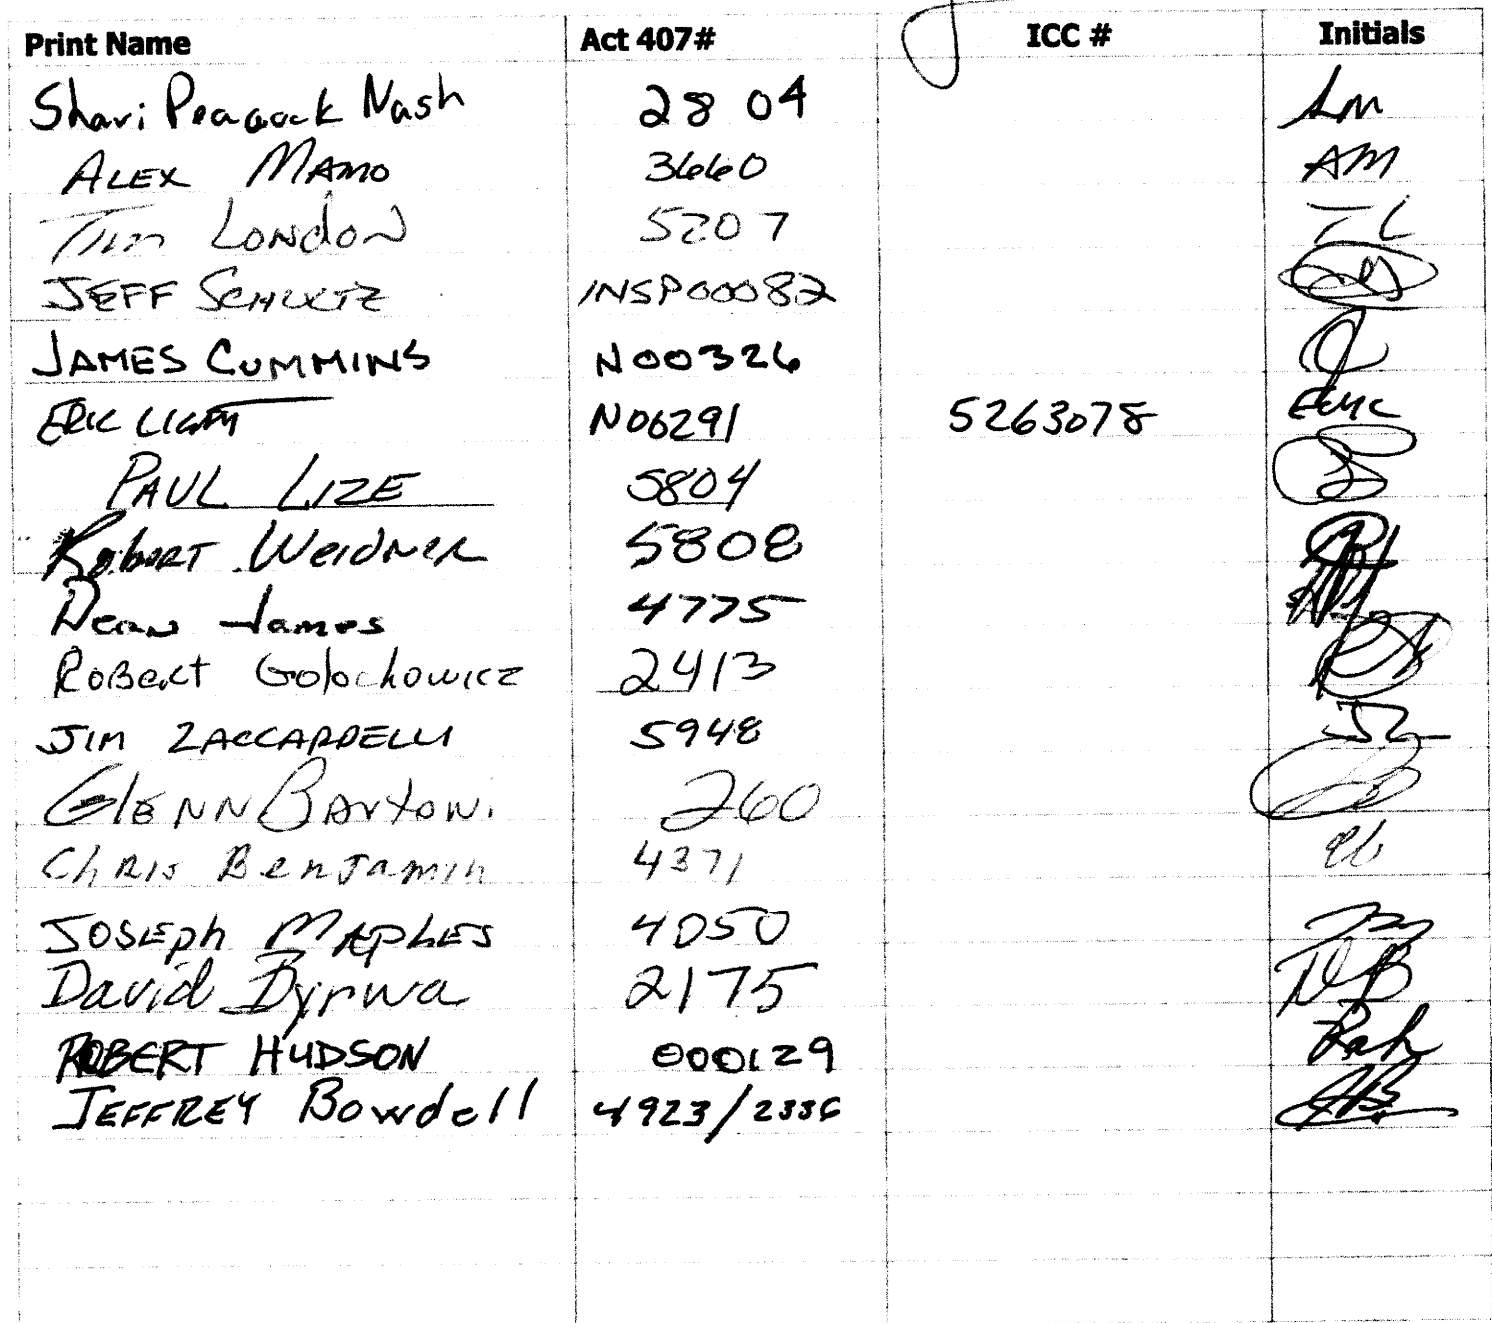 Print Name Act 407# ICC # Initials
Shari Peacock Nash 2804
ALEX MAMO 3660 AM
Tim LONDON 5207 TL
JEFF SCHULTZ INSP00082
JAMES CUMMINS N00326
ERIC LIGHT N06291 5263078
PAUL LIZE 5804
Robert Weidner 5808
Dean James 4775
Robert Golochowicz 2413
JIM ZACCARDELLI 5948 JZ
GlENN BArtoN. 260
ChRis Benjamin 4371 cb
JOSEph MAphES 4050
David Byrwa 2175 DB
ROBERT HUDSON 000129 Rah
JEFFREY Bowdell 4923/2336 JB